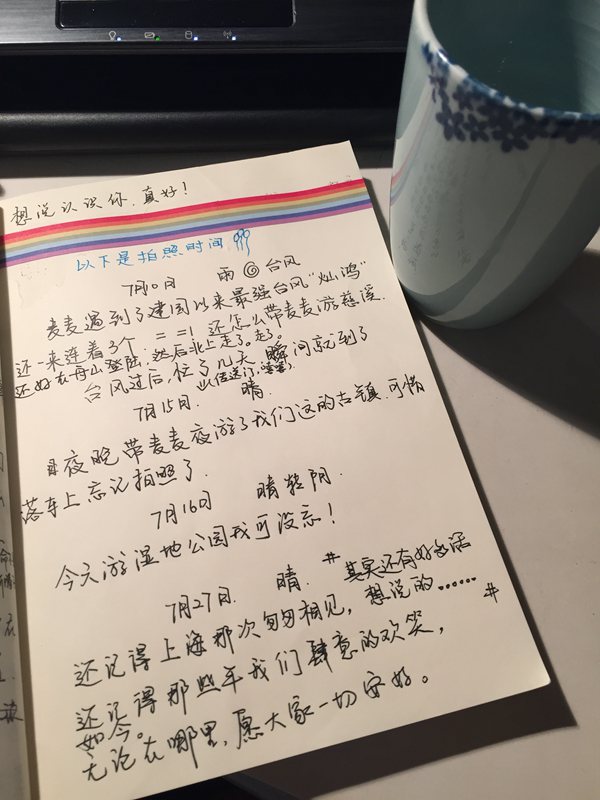 想说认识你,真好!
以下是拍照时间
7月10日 雨 台风
麦麦遇到了建国以来最强台风"灿鸿"
还一来连着3个 = =! 还怎么带麦麦游慈溪.
还好在舟山登陆,然后北上走了。走了。
台风过后,住了几天,瞬间就到了
7月15日. 晴.
夜晚带麦麦夜游了我们这的古镇,可惜
落车上忘记拍照了.
7月16日 晴转阴.
今天游湿地公园我可没忘!
7月27日. 晴. #其实还有好多话
想说的…… #
还记得上海那次匆匆相见,
还记得那些年我们肆意的欢笑,
如今。
无论在哪里,愿大家一切安好。